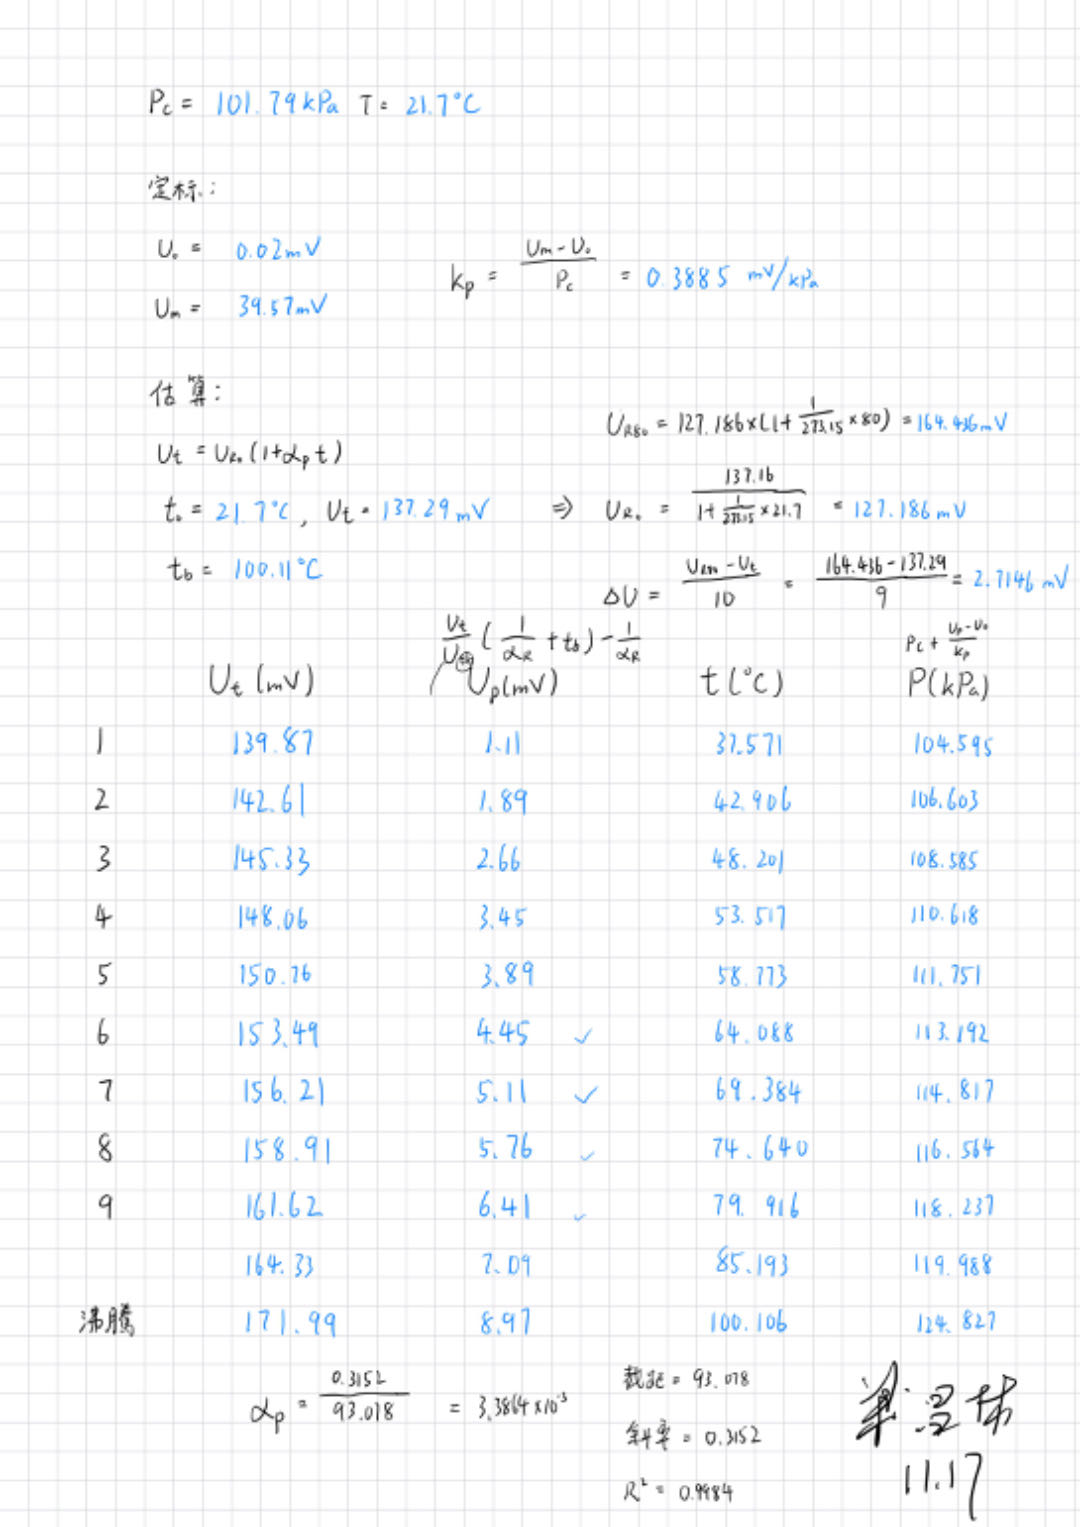 Pc = 101.79kPa T = 21.7°C
定标:
U₀ = 0.02mV
Um = 39.57mV
kp = (Um - U₀)/Pc = 0.3885 mV/kPa
估算:
UR80 = 127.186×(1+1/273.15×80) = 164.436mV
Ut = UR₀(1+αpt)
t₀ = 21.7°C, Ut = 137.29mV ⇒ UR₀ = 137.16/(1+1/273.15×21.7) = 127.186mV
tb = 100.11°C
ΔU = (URm - Ut)/10 = (164.436-137.29)/9 = 2.7146 mV
(1/αR + tb) - 1/αR
Pc + (Up-U₀)/kp
Ut (mV) Up(mV) t(°C) P(kPa)
1 139.87 1.11 37.571 104.595
2 142.61 1.89 42.906 106.603
3 145.33 2.66 48.201 108.585
4 148.06 3.45 53.517 110.618
5 150.76 3.89 58.773 111.751
6 153.49 4.45 ✓ 64.088 113.192
7 156.21 5.11 ✓ 69.384 114.817
8 158.91 5.76 ✓ 74.640 116.564
9 161.62 6.41 ✓ 79.916 118.237
164.33 7.09 85.193 119.988
沸腾 171.99 8.97 100.106 124.827
αp = 0.3152/93.078 = 3.3864×10⁻³
截距 = 93.078
斜率 = 0.3152
R² = 0.9984
11.17